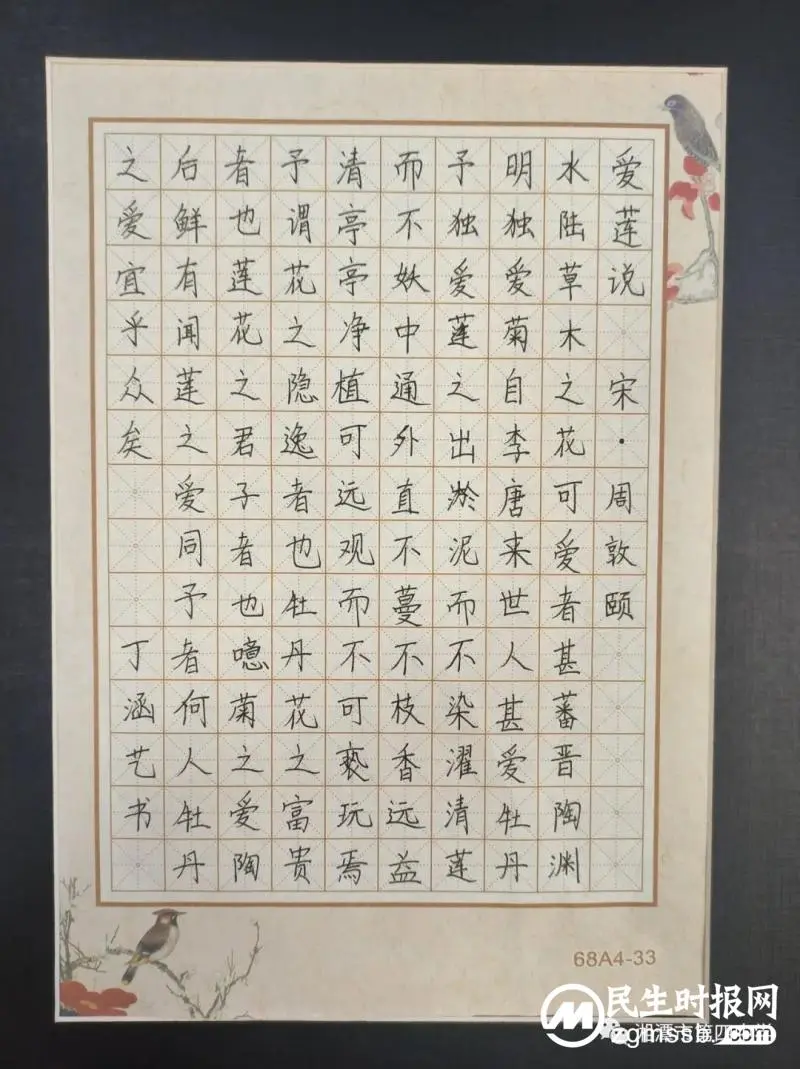 爱莲说 宋·周敦颐
水陆草木之花可爱者甚蕃晋陶渊
明独爱菊自李唐来世人甚爱牡丹
予独爱莲之出淤泥而不染濯清莲
而不妖中通外直不蔓不枝香远益
清亭亭净植可远观而不可亵玩焉
予谓花之隐逸者也牡丹花之富贵
者也莲花之君子者也噫菊之爱陶
后鲜有闻莲之爱同予者何人牡丹
之爱宜乎众矣 丁涵艺书
68A4-33
民生时报网
.com
湘潭市第四